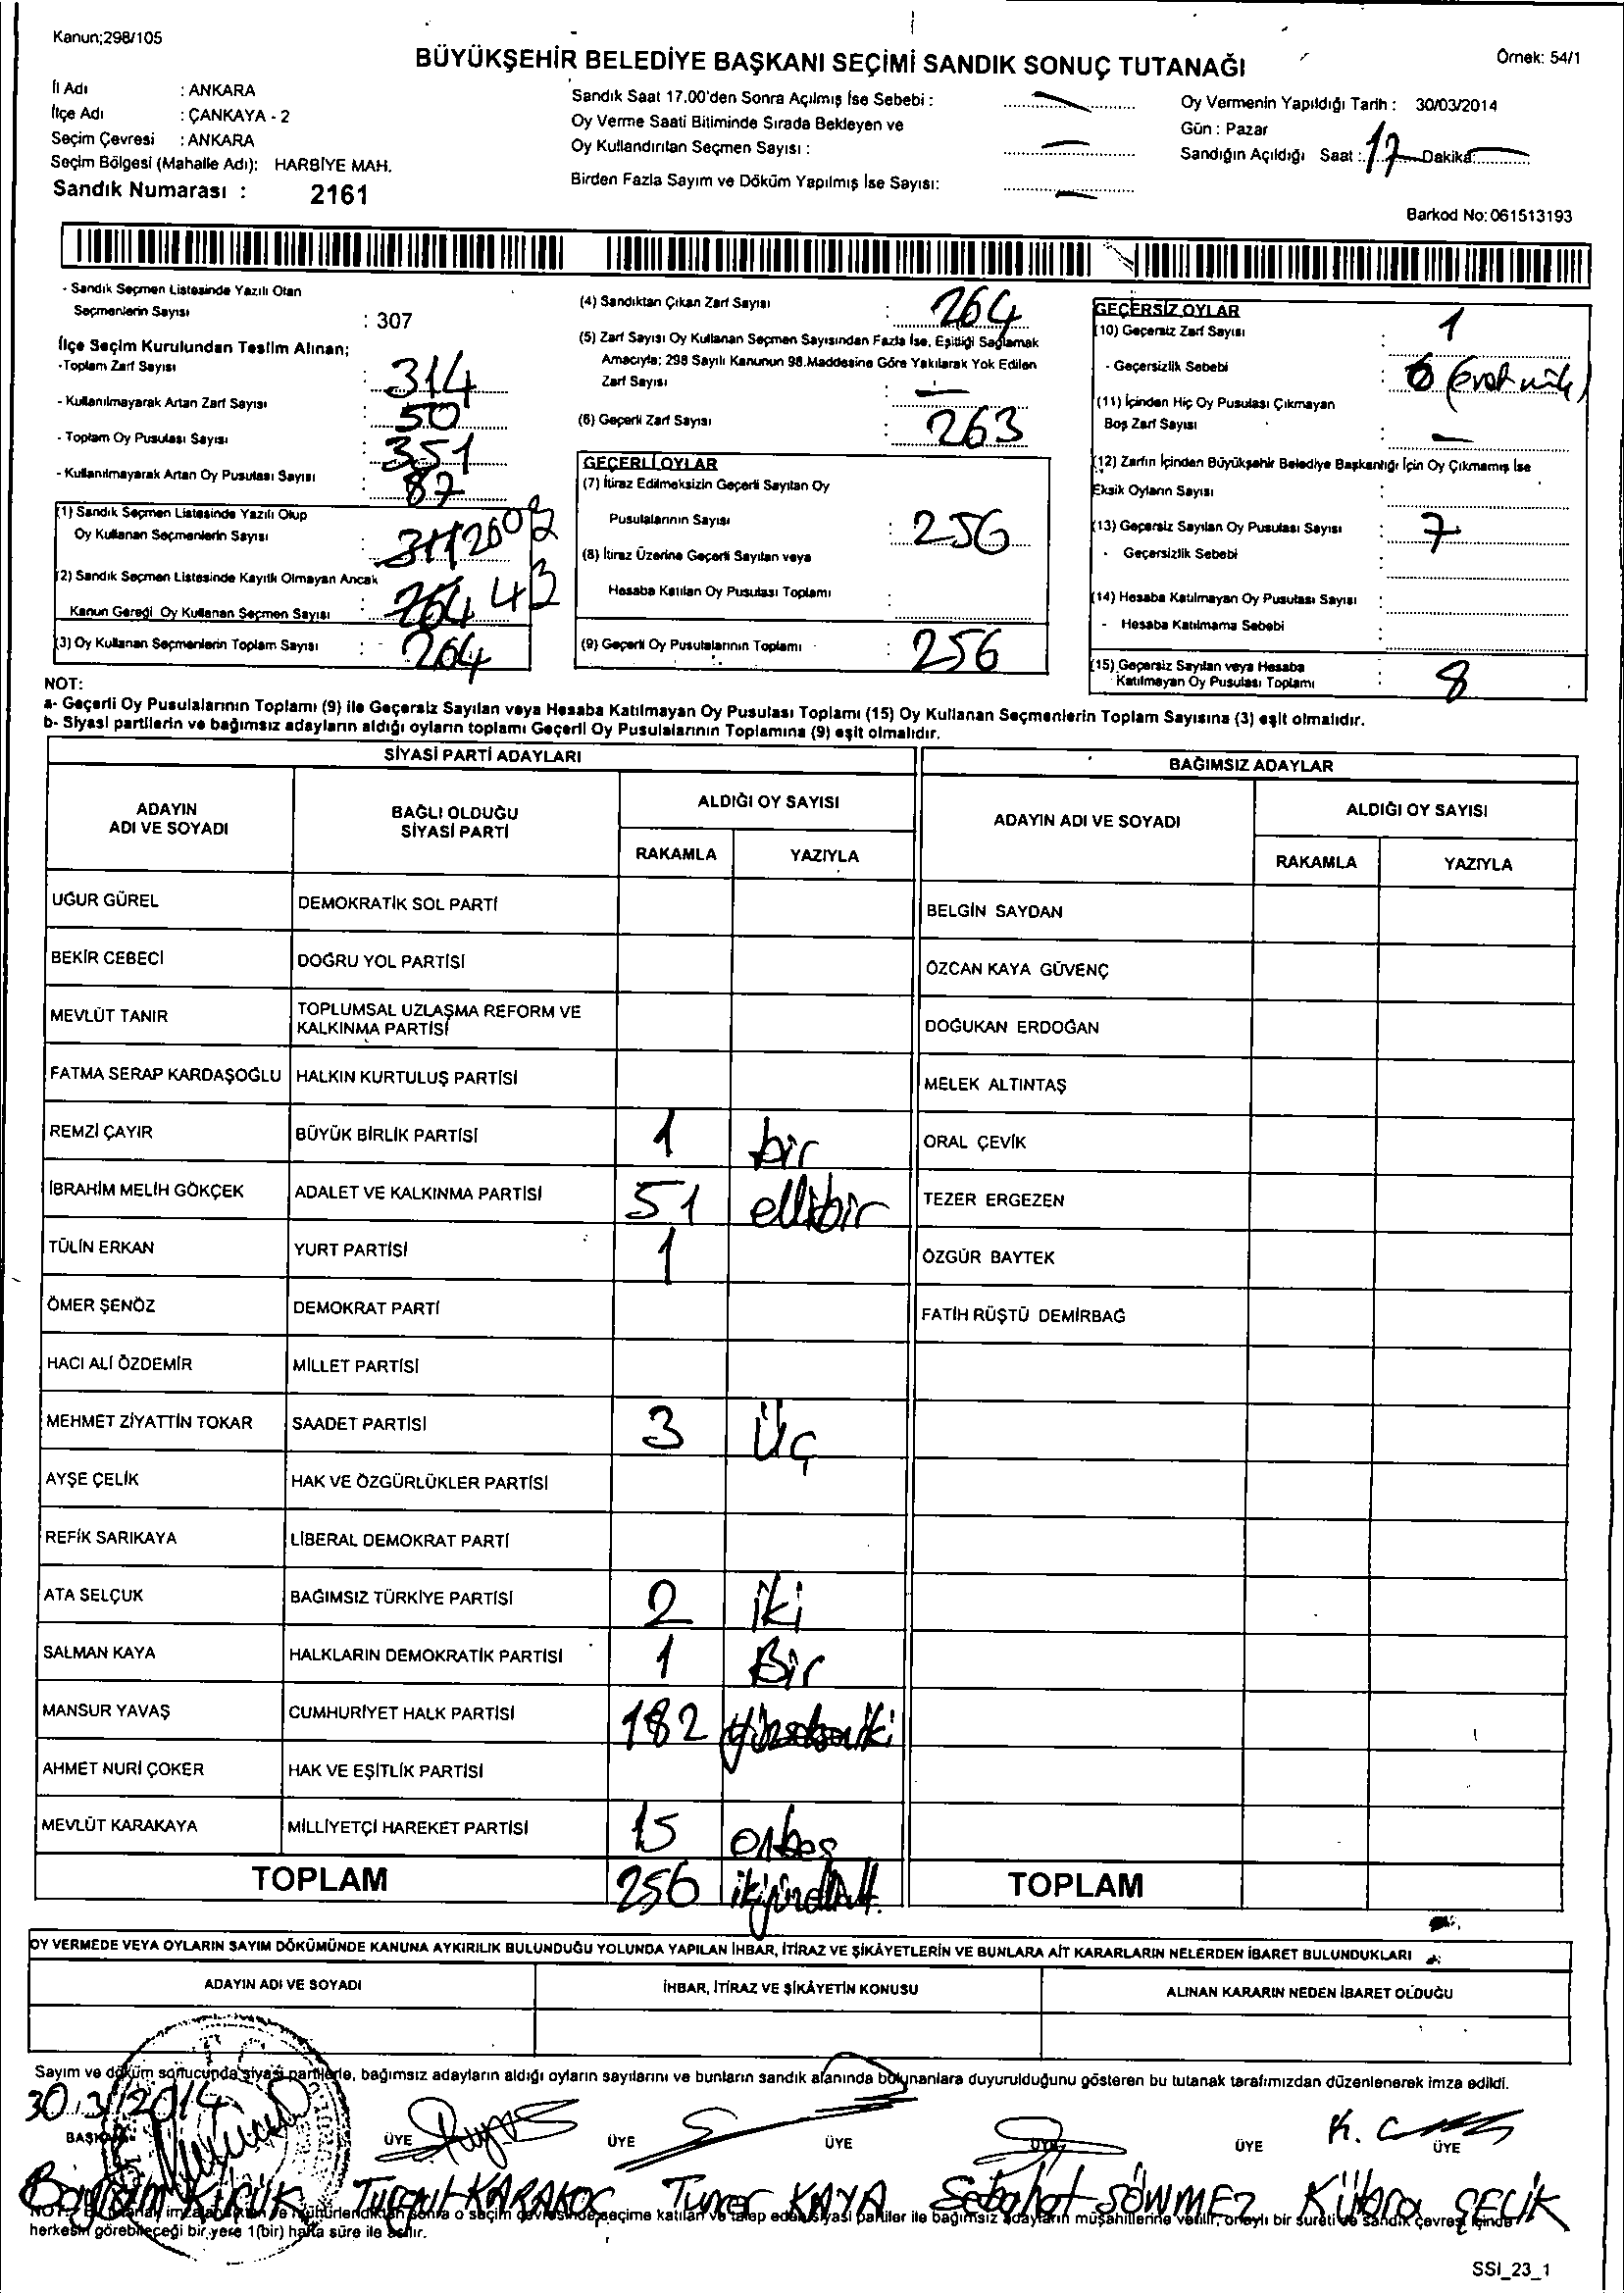 Kanun;298/105
BÜYÜKŞEHİR BELEDİYE BAŞKANI SEÇİMİ SANDIK SONUÇ TUTANAĞI
Örnek: 54/1
İl Adı : ANKARA
İlçe Adı : ÇANKAYA - 2
Seçim Çevresi : ANKARA
Seçim Bölgesi (Mahalle Adı): HARBİYE MAH.
Sandık Numarası : 2161
Sandık Saat 17.00'den Sonra Açılmış İse Sebebi :
Oy Verme Saati Bitiminde Sırada Bekleyen ve
Oy Kullandırılan Seçmen Sayısı :
Birden Fazla Sayım ve Döküm Yapılmış İse Sayısı:
Oy Vermenin Yapıldığı Tarih : 30/03/2014
Gün : Pazar
Sandığın Açıldığı Saat : 17 Dakika:
Barkod No: 061513193
- Sandık Seçmen Listesinde Yazılı Olan
Seçmenlerin Sayısı : 307
İlçe Seçim Kurulundan Teslim Alınan;
-Toplam Zarf Sayısı : 314
- Kullanılmayarak Artan Zarf Sayısı : 50
- Toplam Oy Pusulası Sayısı : 351
- Kullanılmayarak Artan Oy Pusulası Sayısı : 87
(1) Sandık Seçmen Listesinde Yazılı Olup
Oy Kullanan Seçmenlerin Sayısı : 260
(2) Sandık Seçmen Listesinde Kayıtlı Olmayan Ancak
Kanun Gereği Oy Kullanan Seçmen Sayısı : 264 4
(3) Oy Kullanan Seçmenlerin Toplam Sayısı : 264
(4) Sandıktan Çıkan Zarf Sayısı : 264
(5) Zarf Sayısı Oy Kullanan Seçmen Sayısından Fazla İse, Eşitliği Sağlamak
Amacıyla; 298 Sayılı Kanunun 98.Maddesine Göre Yakılarak Yok Edilen
Zarf Sayısı : —
(6) Geçerli Zarf Sayısı : 263
GEÇERLİ OYLAR
(7) İtiraz Edilmeksizin Geçerli Sayılan Oy
Pusulalarının Sayısı : 256
(8) İtiraz Üzerine Geçerli Sayılan veya
Hesaba Katılan Oy Pusulası Toplamı :
(9) Geçerli Oy Pusulalarının Toplamı : 256
GEÇERSİZ OYLAR
(10) Geçersiz Zarf Sayısı : 1
- Geçersizlik Sebebi :
(11) İçinden Hiç Oy Pusulası Çıkmayan
Boş Zarf Sayısı : —
(12) Zarfın İçinden Büyükşehir Belediye Başkanlığı İçin Oy Çıkmamış İse
Eksik Oyların Sayısı :
(13) Geçersiz Sayılan Oy Pusulası Sayısı : 7
- Geçersizlik Sebebi
(14) Hesaba Katılmayan Oy Pusulası Sayısı :
- Hesaba Katılmama Sebebi :
(15) Geçersiz Sayılan veya Hesaba
Katılmayan Oy Pusulası Toplamı : 8
NOT:
a- Geçerli Oy Pusulalarının Toplamı (9) ile Geçersiz Sayılan veya Hesaba Katılmayan Oy Pusulası Toplamı (15) Oy Kullanan Seçmenlerin Toplam Sayısına (3) eşit olmalıdır.
b- Siyasi partilerin ve bağımsız adayların aldığı oyların toplamı Geçerli Oy Pusulalarının Toplamına (9) eşit olmalıdır.
SİYASİ PARTİ ADAYLARI
BAĞIMSIZ ADAYLAR
ADAYIN ADI VE SOYADI
BAĞLI OLDUĞU SİYASİ PARTİ
ALDIĞI OY SAYISI
RAKAMLA YAZIYLA
ADAYIN ADI VE SOYADI
ALDIĞI OY SAYISI
RAKAMLA YAZIYLA
UĞUR GÜREL DEMOKRATİK SOL PARTİ BELGİN SAYDAN
BEKİR CEBECİ DOĞRU YOL PARTİSİ ÖZCAN KAYA GÜVENÇ
MEVLÜT TANIR TOPLUMSAL UZLAŞMA REFORM VE KALKINMA PARTİSİ DOĞUKAN ERDOĞAN
FATMA SERAP KARDAŞOĞLU HALKIN KURTULUŞ PARTİSİ MELEK ALTINTAŞ
REMZİ ÇAYIR BÜYÜK BİRLİK PARTİSİ 1 bir ORAL ÇEVİK
İBRAHİM MELİH GÖKÇEK ADALET VE KALKINMA PARTİSİ 51 ellibir TEZER ERGEZEN
TÜLİN ERKAN YURT PARTİSİ 1 ÖZGÜR BAYTEK
ÖMER ŞENÖZ DEMOKRAT PARTİ FATİH RÜŞTÜ DEMİRBAĞ
HACI ALİ ÖZDEMİR MİLLET PARTİSİ
MEHMET ZİYATTİN TOKAR SAADET PARTİSİ 3 Üç
AYŞE ÇELİK HAK VE ÖZGÜRLÜKLER PARTİSİ
REFİK SARIKAYA LİBERAL DEMOKRAT PARTİ
ATA SELÇUK BAĞIMSIZ TÜRKİYE PARTİSİ 2 iki
SALMAN KAYA HALKLARIN DEMOKRATİK PARTİSİ 1 Bir
MANSUR YAVAŞ CUMHURİYET HALK PARTİSİ 182 yüzsekseniki
AHMET NURİ ÇOKER HAK VE EŞİTLİK PARTİSİ
MEVLÜT KARAKAYA MİLLİYETÇİ HAREKET PARTİSİ 15 onbeş
TOPLAM 256 ikiyüzellialtı TOPLAM
OY VERMEDE VEYA OYLARIN SAYIM DÖKÜMÜNDE KANUNA AYKIRILIK BULUNDUĞU YOLUNDA YAPILAN İHBAR, İTİRAZ VE ŞİKÂYETLERİN VE BUNLARA AİT KARARLARIN NELERDEN İBARET BULUNDUKLARI
ADAYIN ADI VE SOYADI İHBAR, İTİRAZ VE ŞİKÂYETİN KONUSU ALINAN KARARIN NEDEN İBARET OLDUĞU
Sayım ve döküm sonucunda siyasi partilerle, bağımsız adayların aldığı oyların sayılarını ve bunların sandık alanında bulunanlara duyurulduğunu gösteren bu tutanak tarafımızdan düzenlenerek imza edildi.
30.3/2014
BAŞKAN ÜYE ÜYE ÜYE ÜYE ÜYE ÜYE
KIRIK TURGUT KARAKOÇ Tuncer KAYA Sebahat SÖNMEZ Kübra ÇELİK
NOT: imzalanıp ve mühürlendikten sonra o seçim çevresinde seçime katılan ve talep eden siyasi partiler ile bağımsız adayların müşahitlerine verilir, onaylı bir sureti de sandık çevresi içinde
herkesin görebileceği bir yere 1(bir) hafta süre ile asılır.
SSI_23_1